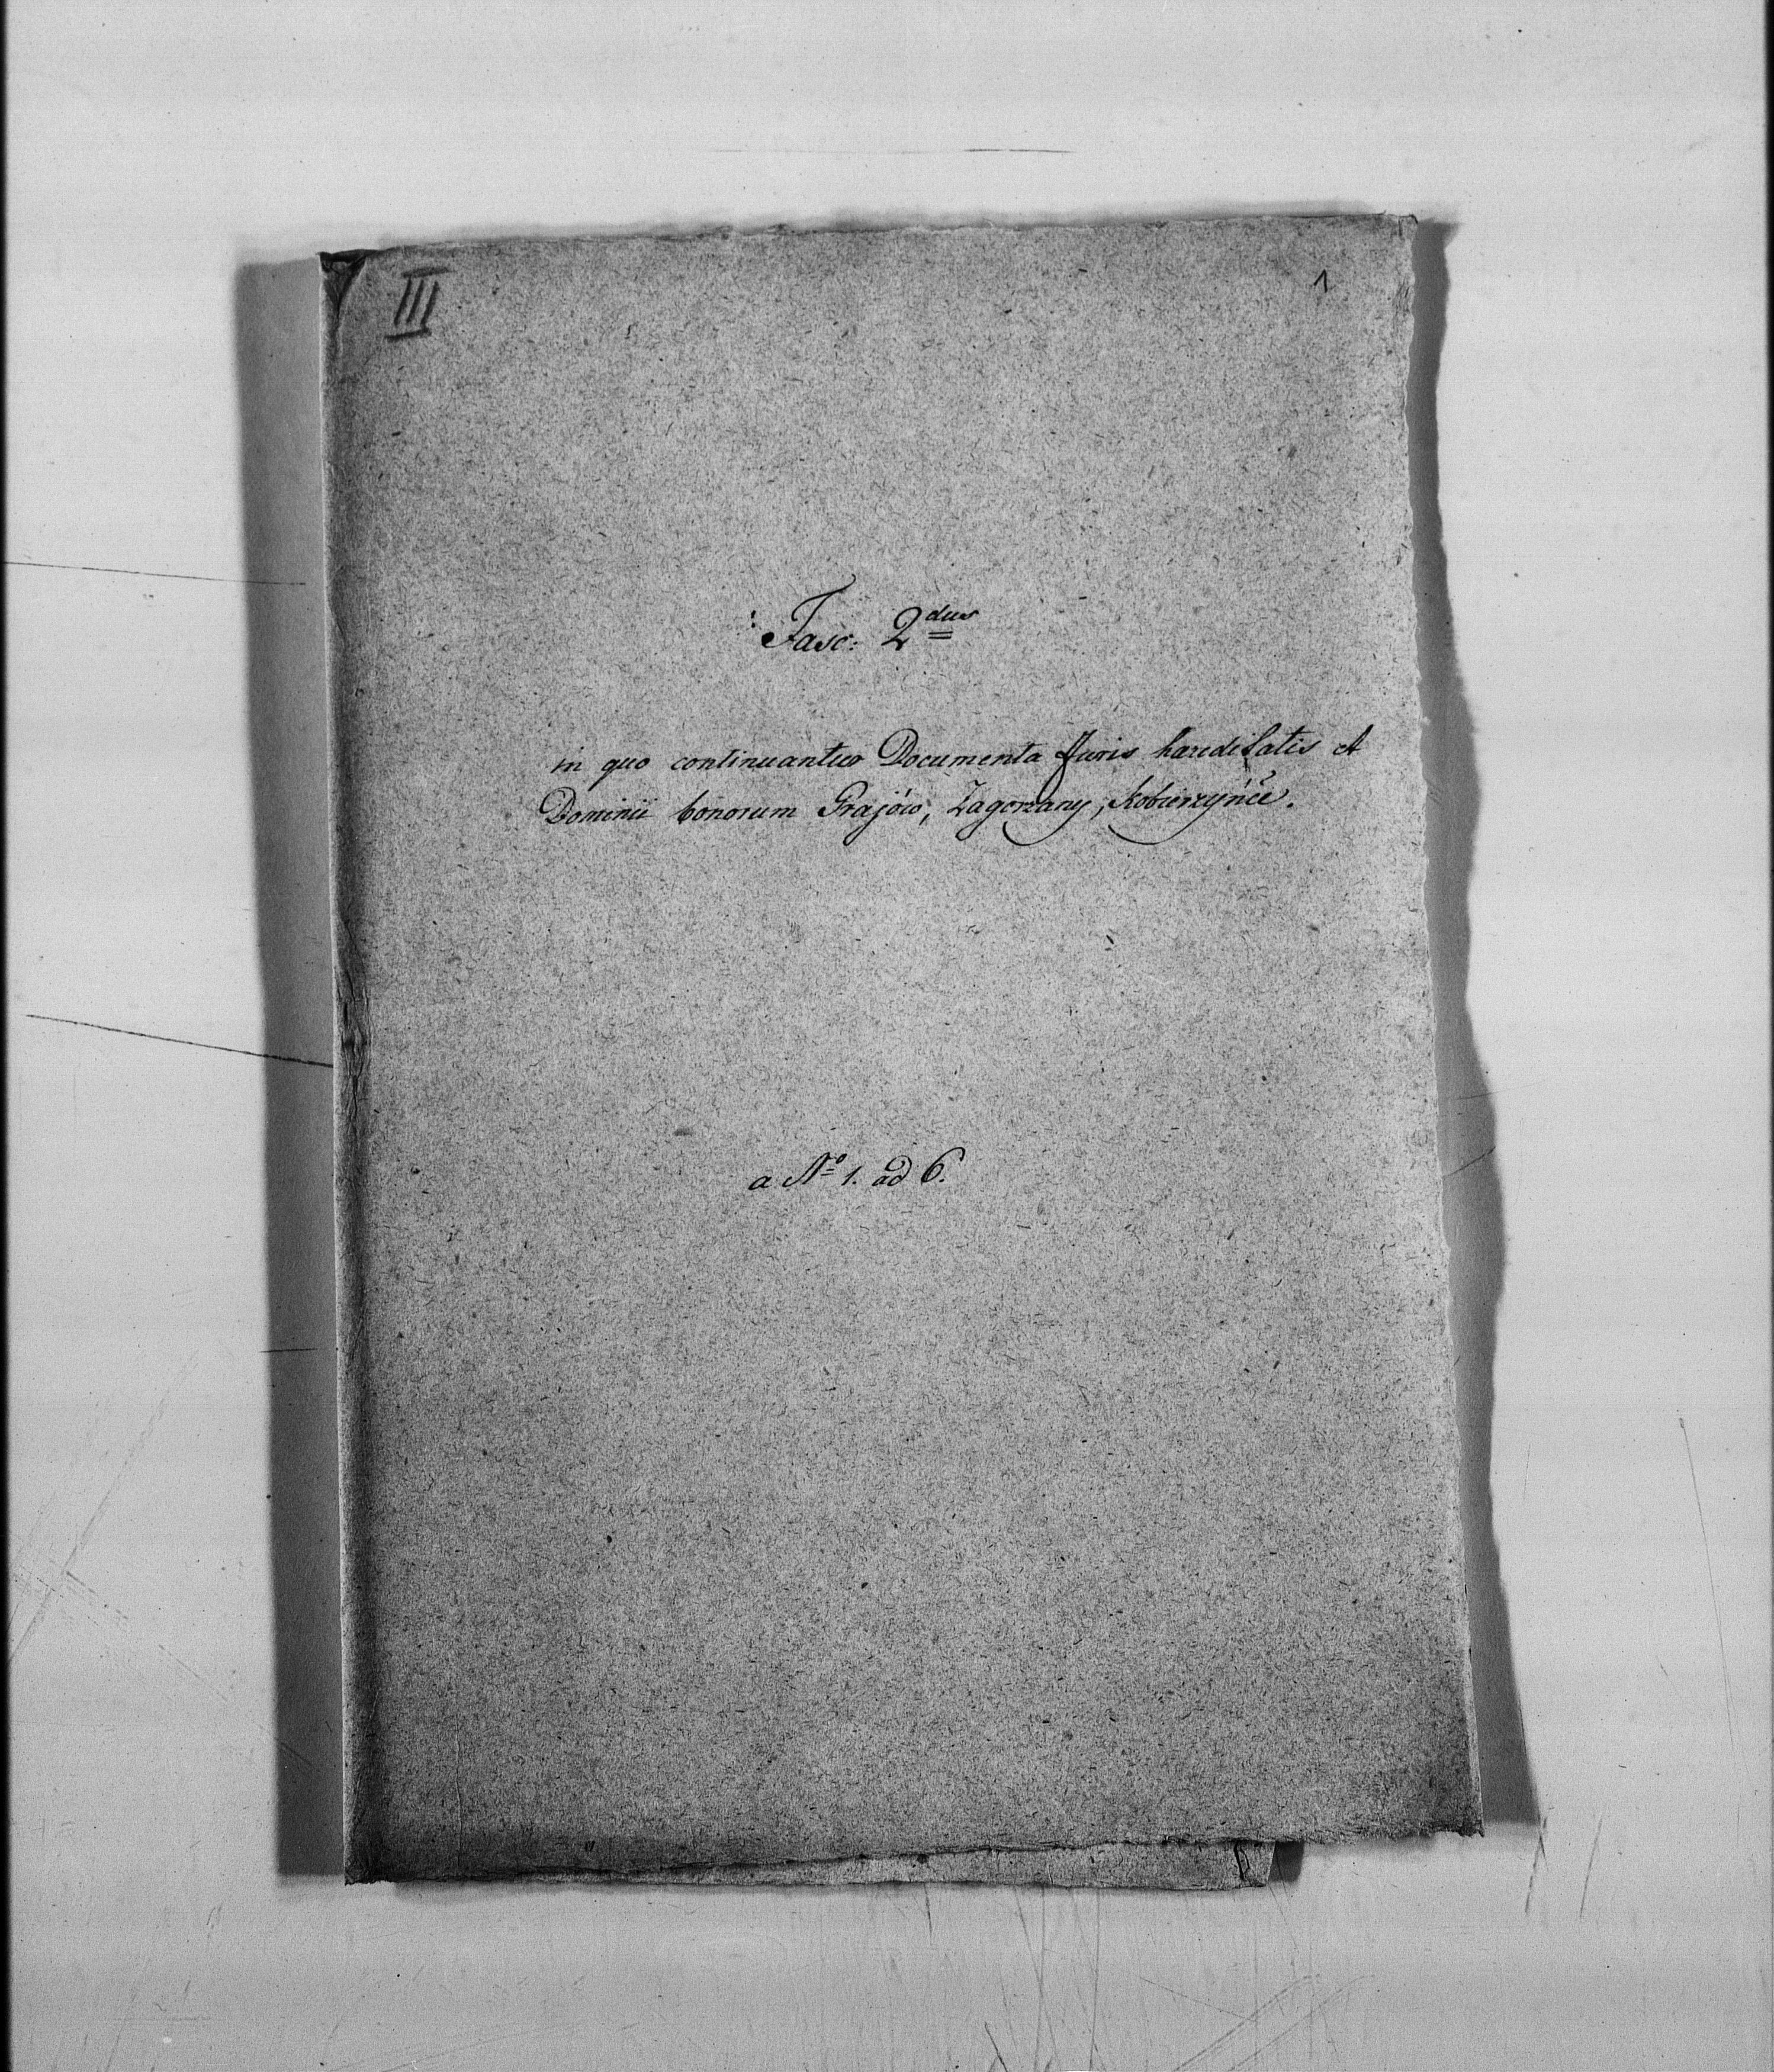 III
1
Fasc: 2dus
in quo continuantur Documenta Juris hæreditatis et
Dominii bonorum Grajów, Zagorzany, Kobierzyńce.
a No 1. ad 6.